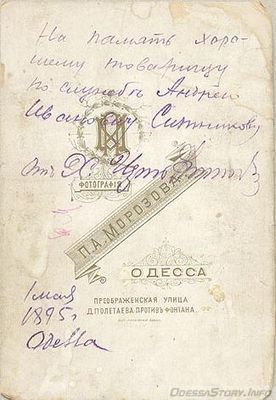 На память хоро-
шему товарищу
по службе Андрею
Ивановичу Ситникову
от
ФОТОГРАФІЯ
П.А. МОРОЗОВА
ОДЕССА
ПРЕОБРАЖЕНСКАЯ УЛИЦА
Д. ПОЛЕТАЕВА, ПРОТИВЪ ФОНТАНА.
1 мая
1895 г
Одесса
OdessaStory.Info